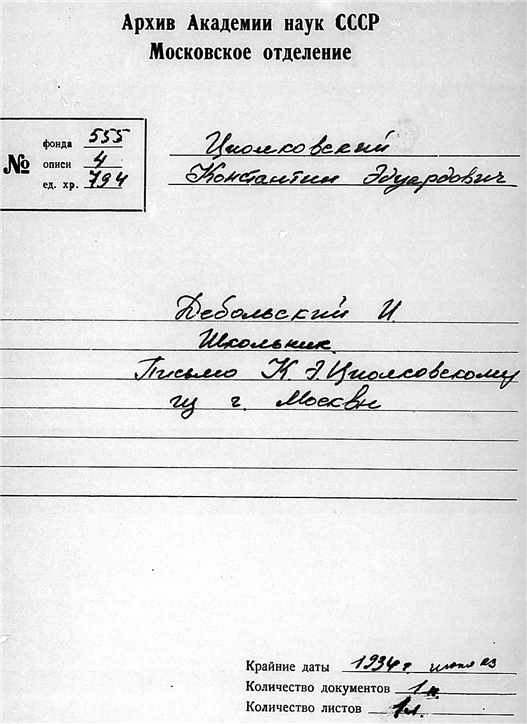 Архив Академии наук СССР
Московское отделение
№
фонда 555
описи 4
ед. хр. 794
Циолковский
Константин Эдуардович
Дебольский И.
Школьник.
Письмо К.Э.Циолковскому
из г. Москвы
Крайние даты 1934 г.
Количество документов
Количество листов 1 л.